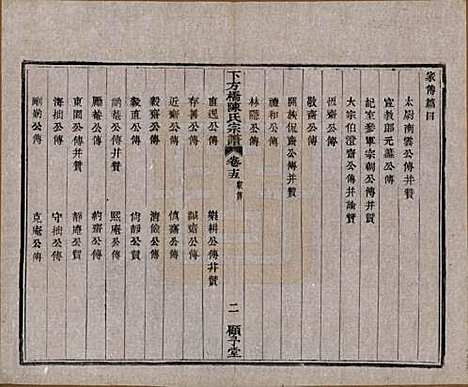 家傳篇目
太尉南雲公傳并贊
宣教郎元藻公傳
記室參軍宗朝公傳并贊
大宗伯澄齋公傳并論贊
恆齋公傳
開族侃齋公傳并贊
敬齋公傳
禮和公傳
林隱公傳
直遜公傳 樂耕公傳并贊
存菴公傳 誠齋公傳
近齋公傳 慎齋公傳
毅齋公傳 清儉公傳
毅直公傳 倚靜公贊
訥菴公傳并贊 熙庵公傳
勵菴公傳 約齋公贊
東園公傳并贊 靜庵公贊
海拙公傳 守拙公傳
剛訥公傳 克庵公傳
下方橋陳氏宗譜 卷十五 家傳 二 願子堂